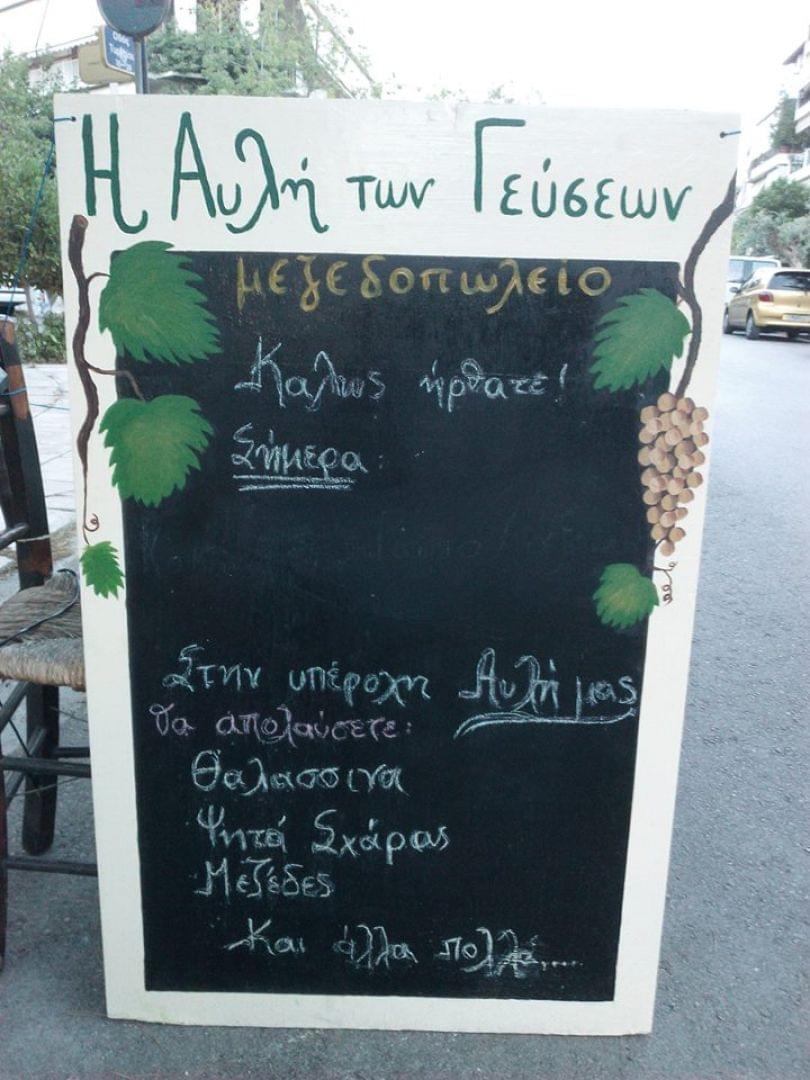 Η Αυλή των Γεύσεων
μεζεδοπωλείο
Καλως ήρθατε!
Σήμερα:
Στην υπέροχη Αυλή μας
θα απολαύσετε:
Θαλασσινα
Ψητά Σχάρας
Μεζέδες
Και άλλα πολλά......